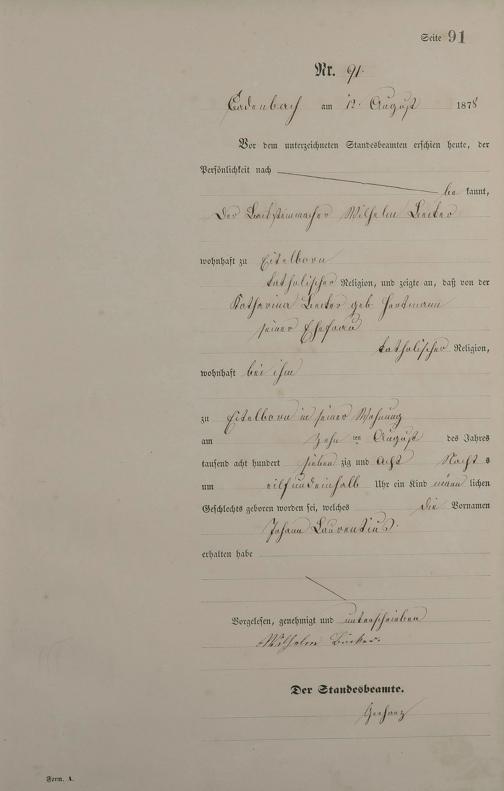 Seite 91
Nr. 91.
Cadenbach am 12. August 1878
Vor dem unterzeichneten Standesbeamten erschien heute, der
Persönlichkeit nach
be kannt,
Der Backsteinmacher Wilhelm
wohnhaft zu Eitelborn
katholischer Religion, und zeigte an, daß von der
Katharina geb. Hartmann
seiner Ehefrau
katholischer Religion,
wohnhaft bei ihm
zu Eitelborn in seiner Wohnung
am Zehn ten August des Jahres
tausend acht hundert sieben zig und acht Nacht s
um eilfundeinhalb Uhr ein Kind männ lichen
Geschlechts geboren worden sei, welches die Vornamen
Johann Laurentius
erhalten habe
Vorgelesen, genehmigt und unterschrieben
Wilhelm
Der Standesbeamte.
Form. A.